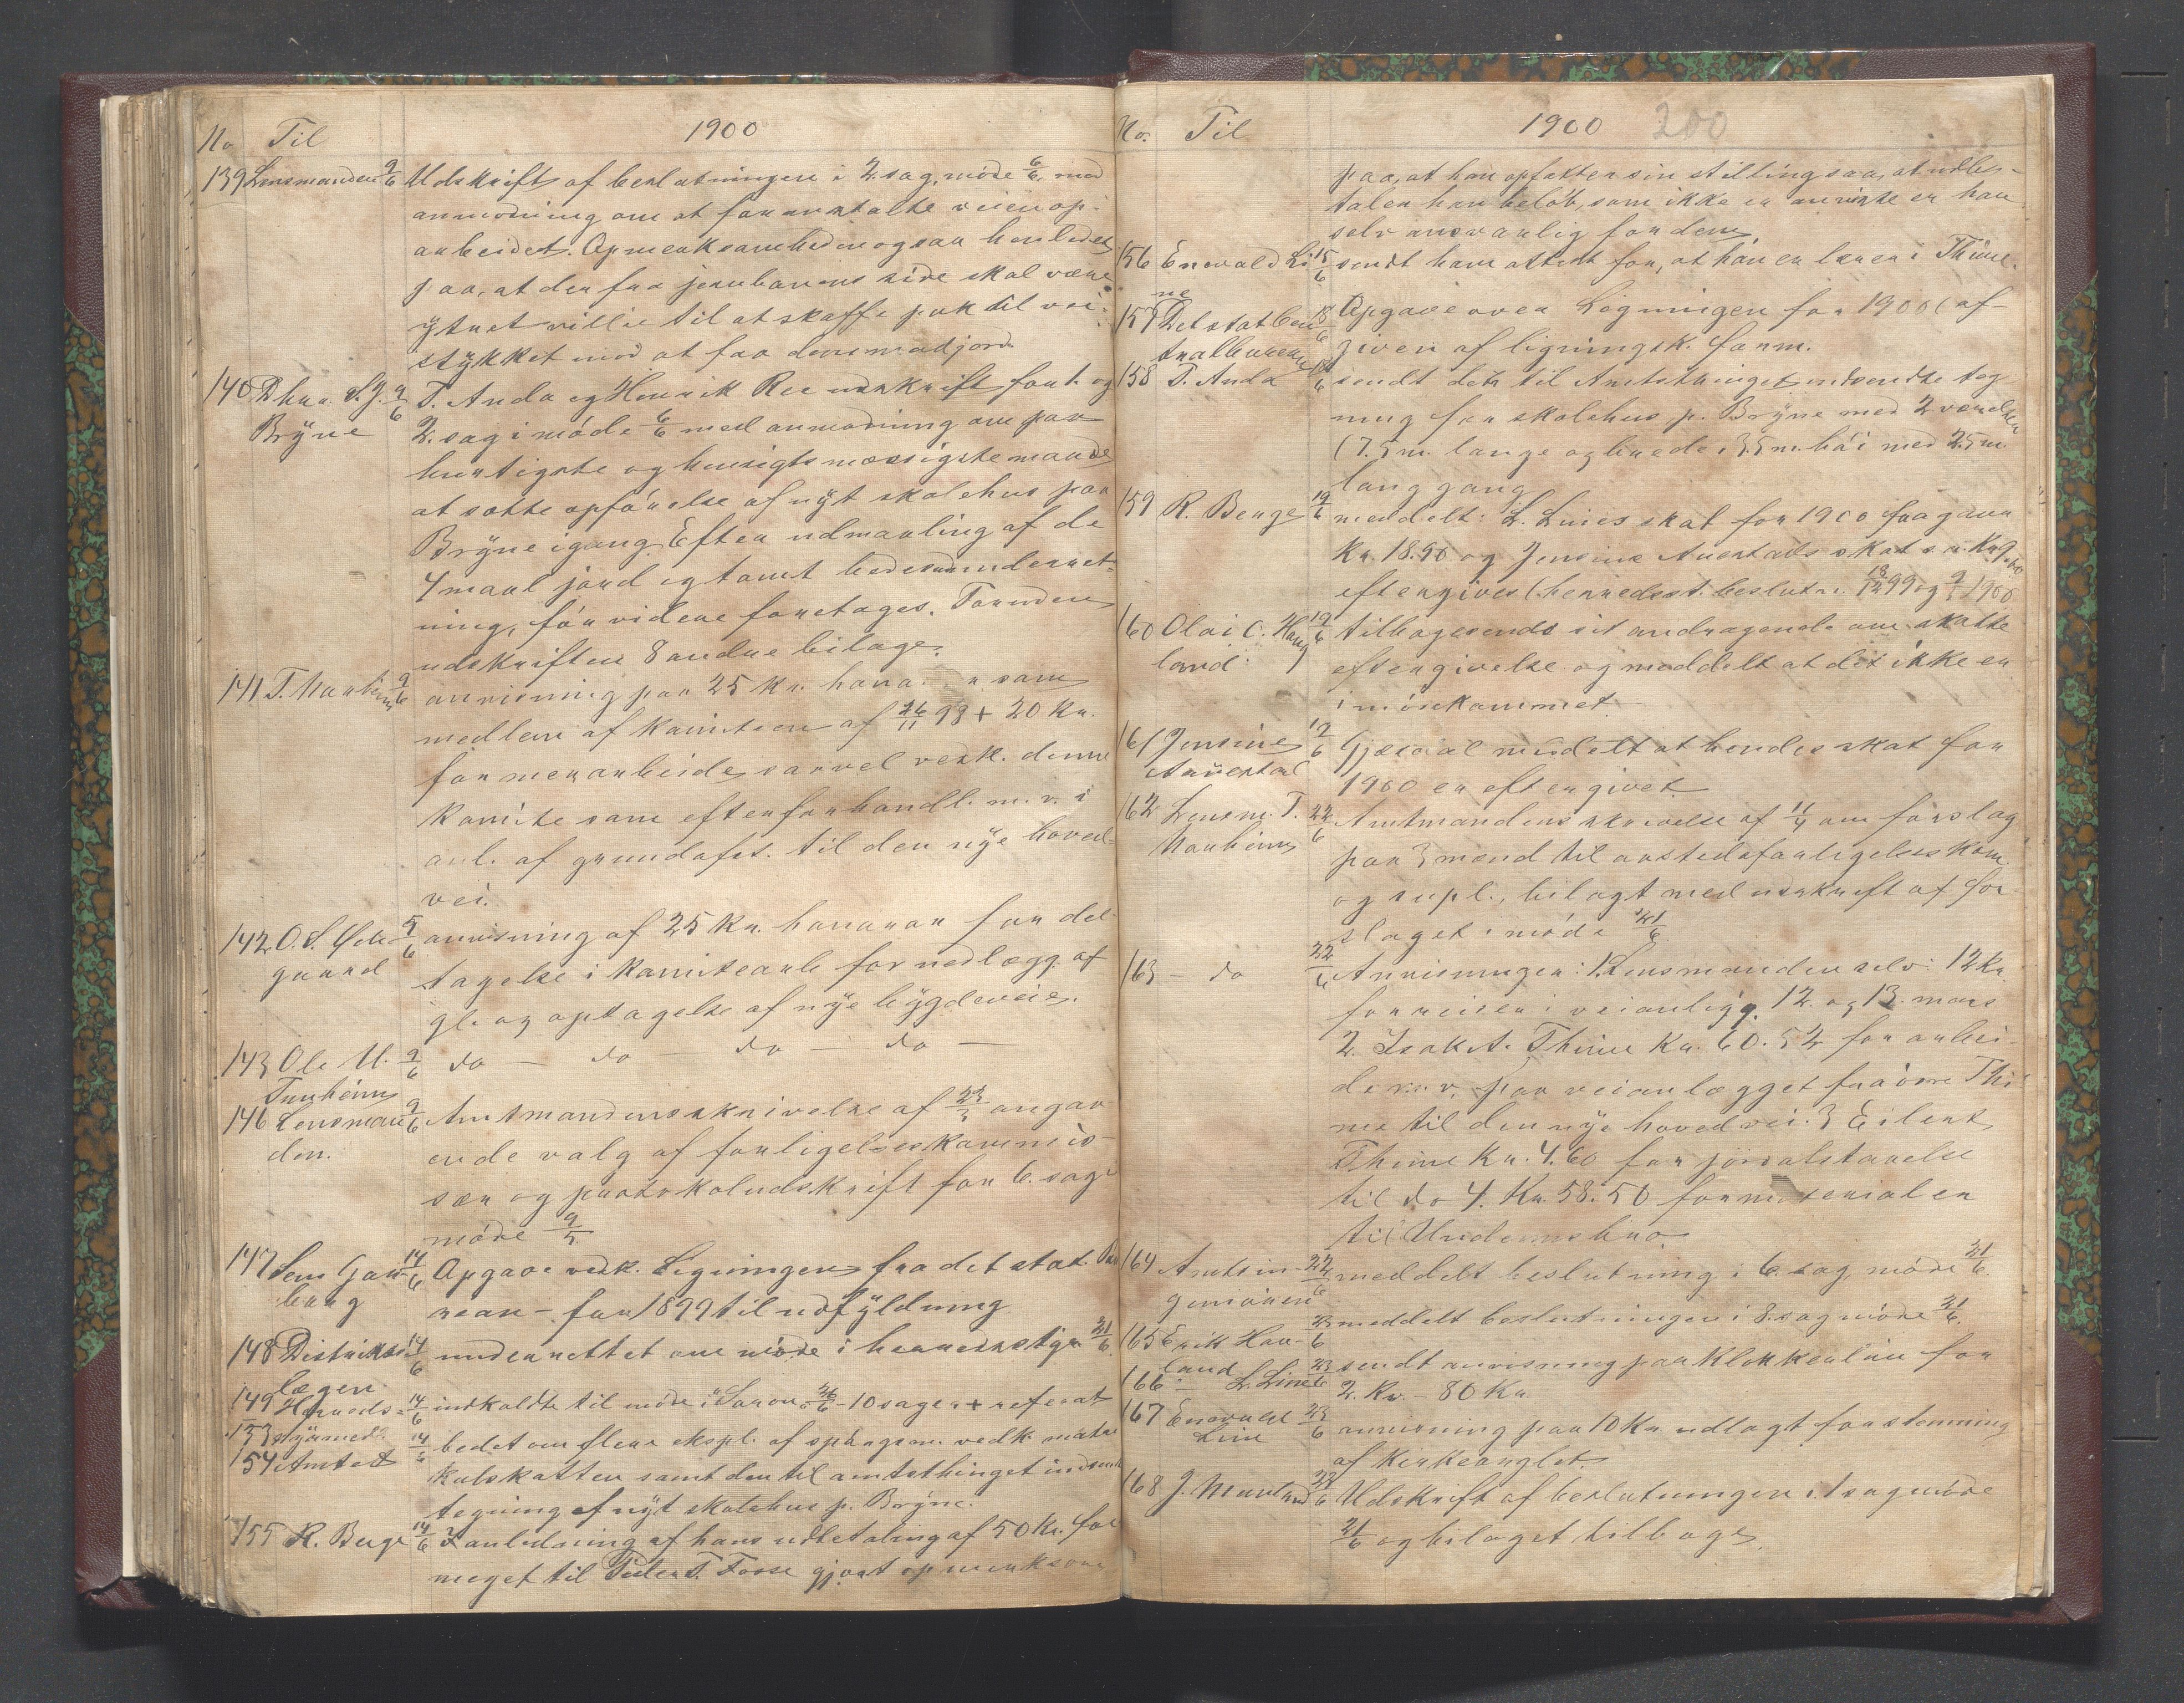 No Til 1900
139 Lensmanden 9/6 Udskrift af beslutningen i 2. sag, møde 6/6, med
anmodning om at foranstalte veien op-
arbeidet. Opmerksomheden ogsaa henledes
paa, at der fra jernbanens side skal være
ytret villie til at skaffe puk til vei-
stykket mod at faa dens madjord.
140 S. J. 9/6 T. Anda og Henrik Ree udskrift for 1. og
Bryne 2. sag i møde 6/6 med anmodning om paa
hurtigste og hensigtsmæssigste maade
at sætte opførelse af nyt skolehus paa
Bryne igang. Efter udmaaling af de
4 maal jord og tomt bedes underret-
ning, før videre foretages. Foruden
udskriften 8 andre bilage.
141 T. Norheim 9/6 anvisning paa 25 Kr. honorar som
medlem af komiteen af 26/11 98 + 20 Kr.
for merarbeide saavel vedk. denne
komite som efter forhandl. m. v. i
anl. af grundafst. til den nye hoved-
vei.
142 O. S. Øde- 9/6 anvisning af 25 Kr. honorar for del-
gaard tagelse i komitearb. for nedlægg. af
gl. og optagelse af nye bygdeveie.
143 Ole U. 9/6 do — do — do — do —
Tunheim
146 Lensman- 9/6 Amtmandens skrivelse af 23/3 angaa-
den. ende valg af forligelseskommis-
sær og protokoludskrift for 6. sag i
møde 9/5
147 Lens 14/6 Opgave vedk. Ligningen fra det stat. Bu-
reau — for 1899 til udfyldning
148 Distrikts- 14/6 underrettet om møde i herredsstyr. 21/6.
lægen
149 Herreds- 14/6 indkaldte til møde i 21/6 - 10 sager + referat
153 styremedl.
154 Amtet 14/6 bedet om flere ekspl. af spørgsm. vedk. matri-
kulskatten samt den til amtsthinget indsendte
tegning af nyt skolehus p. Bryne.
155 R. Berge 14/6 I anledning af hans udbetaling af 50 Kr. for
meget til Peder T. Fosse gjort opmerksom
No. Til 1900 200
paa, at han opfatter sin stilling saa, at udbe-
taler han beløb, som ikke er anviste er han
selv ansvarlig for dem.
156 Enevald Li- 15/6 sendt ham attest for, at han er lærer i Thime.
ne
157 Det stat. Cen- 18/6 Opgave over Ligningen for 1900 (af-
tralbureau given af ligningsk. form.
158 T. Anda 18/6 sendt den til Amtsthinget indsendte teg-
ning for skolehus p. Bryne med 2 værelser
(7.5 m. lange og brede, 3.5 m. høi med 2.5 m.
lang gang
159 R. Berge 19/6 meddelt: L. Lines skat for 1900 fragaar
Kr. 18.90 og Jensine Auestads skat s. a. Kr.
eftergives (herredsst. beslutn. 18/12 99 og 9/5 1900
160 Olai C. Haug- 19/6 tilbagesendt sit andragende om skatte-
land eftergivelse og meddelt at det ikke er
imødekommet
161 Jensine 19/6 Gjesdal meddelt at hendes skat for
Auestad 1900 er eftergivet
162 Lensm. T. 22/6 Amtmandens skrivelse af 11/4 om forslag
Norheim paa 3 mænd til anstedsforligelseskom.
og supl., bilagt med udskrift af for-
slaget i møde 21/6
163 — do 22/6 Anvisninger: 1. Lensmanden selv: 12 Kr.
for reiser i veianligg. 12. og 13. mars
2. Isak A. Thime Kr. 60.52 for arbei-
de m. v. paa veianlægget fra øvre Thi-
me til den nye hovedvei. 3 Eilert
Thime Kr. 4.60 for jordafstaaelse
til do 4. Kr. 58.50 for materialer
til Undemsbro
164 Amtsin- 22/6 meddelt beslutning i 6. sag, møde 21/6.
geniøren
165 Erik Hau- 23/6 meddelt beslutningen i 8. sag møde 21/6.
land
166 — L. Line 23/6 sendt anvisning paa klokkerløn for
2. Kv. — 80 Kr.
167 Enevald 23/6 anvisning paa 10 Kr. udlagt for stemning
Line af kirkeorglet.
168 J. 23/6 Udskrift af beslutningen i 1 sag møde
21/6 og bilaget tilbage.